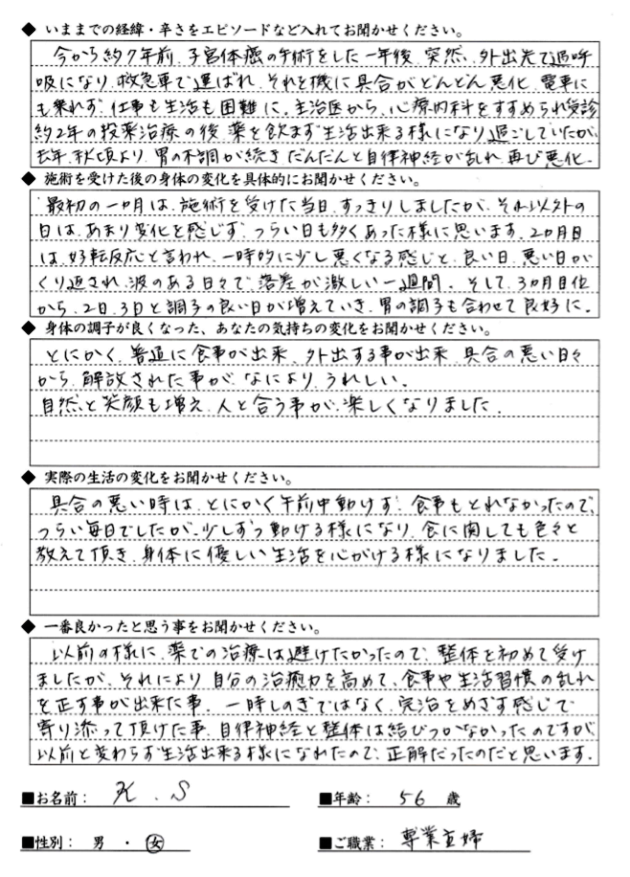 ◆ いままでの経緯・辛さをエピソードなど入れてお聞かせください。
今から約7年前、子宮体癌の手術をした一年後、突然、外出先で過呼
吸になり、救急車で運ばれ、それを機に具合がどんどん悪化、電車に
も乗れず、仕事も生活も困難に。主治医から、心療内科をすすめられ受診
約2年の投薬治療の後、薬を飲まず生活出来る様になり過ごしていたが、
去年、秋頃より、胃の不調が続きだんだんと自律神経が乱れ、再び悪化。
◆ 施術を受けた後の身体の変化を具体的にお聞かせください。
最初の一ヶ月は、施術を受けた当日、すっきりしましたが、それ以外の
日は、あまり変化を感じず、つらい日も多くあった様に思います。2ヵ月目
は、好転反応と言われ、一時的に少し悪くなる感じと、良い日、悪い日が
くり返され、波のある日々で、落差が激しい一週間。そして、3ヵ月目位
から、2日、3日と調子の良い日が増えていき、胃の調子も合わせて良好に。
◆ 身体の調子が良くなった、あなたの気持ちの変化をお聞かせください。
とにかく、普通に食事が出来、外出する事が出来、具合の悪い日々
から、解放された事が、なにより、うれしい。
自然と笑顔も増え、人と合う事が、楽しくなりました。
◆ 実際の生活の変化をお聞かせください。
具合の悪い時は、とにかく午前中動けず、食事もとれなかったので、
つらい毎日でしたが、少しずつ動ける様になり、食に関しても色々と
教えて頂き、身体に優しい生活を心がける様になりました。
◆ 一番良かったと思う事をお聞かせください。
以前の様に、薬での治療は避けたかったので、整体を初めて受け
ましたが、それにより、自分の治癒力を高めて、食事や生活習慣の乱れ
を正す事が出来た事。一時しのぎではなく、完治をめざす感じで
寄り添って頂けた事。自律神経と整体は結びつかなかったのですが、
以前と変わらず生活出来る様になれたので、正解だったのだと思います。
■お名前： K.S ■年齢： 56 歳
■性別： 男 ・ 女 ■ご職業： 専業主婦